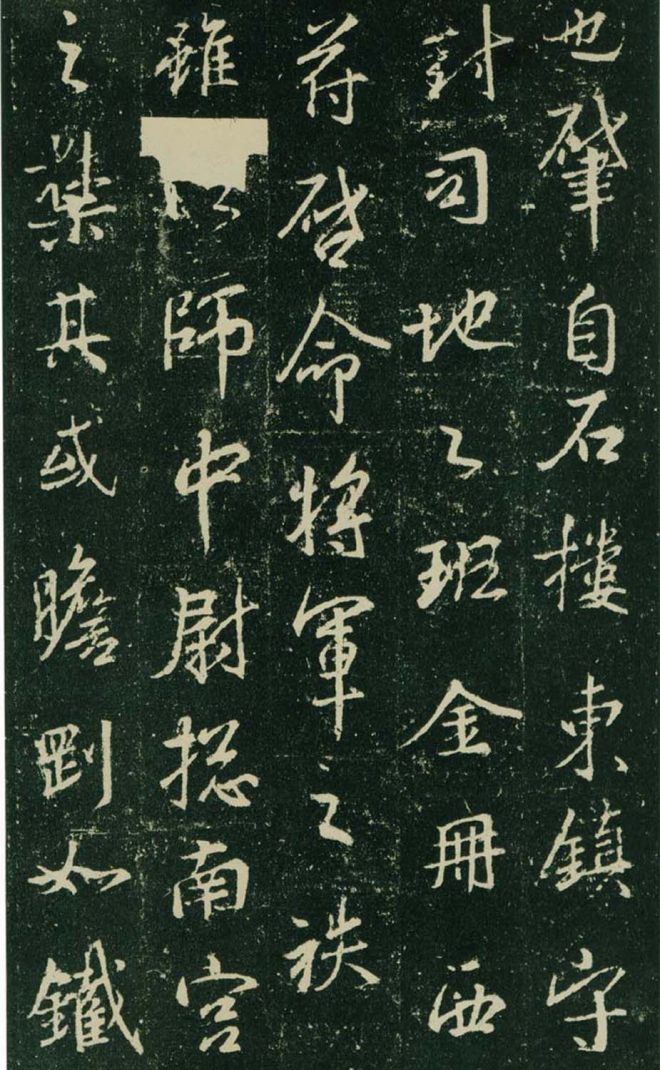 也肇自石樓東鎮守
封司地之班金冊西
苻啓命將軍之袟
雖以師中尉揔南宮
之其或膽剛如鐵